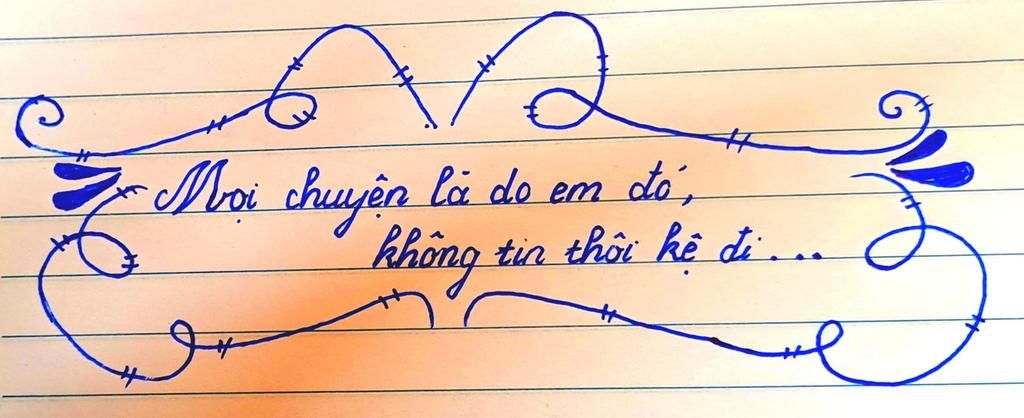 Mọi chuyện là do em đó,
không tin thôi kệ đi...